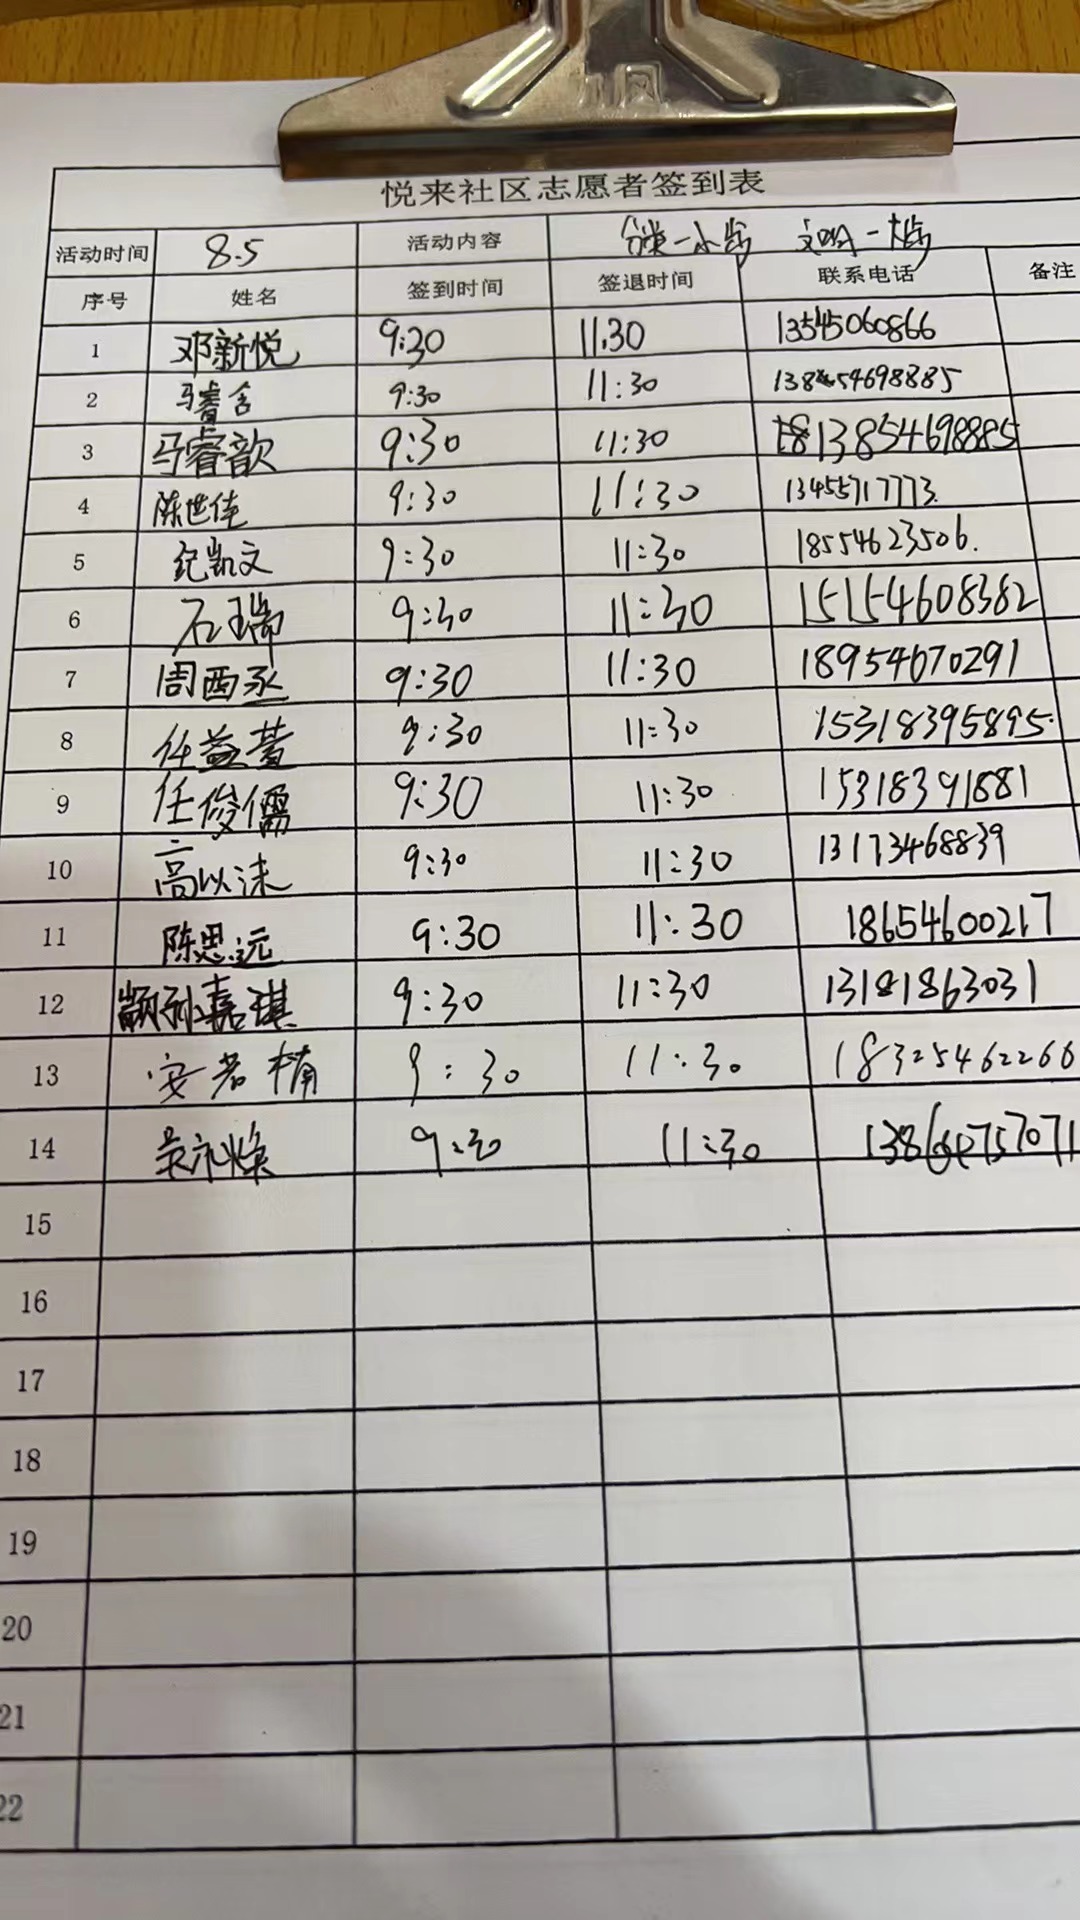 悦来社区志愿者签到表
活动时间 8.5 活动内容 分类一小步 文明一大步
序号 姓名 签到时间 签退时间 联系电话 备注
1 邓新悦 9:30 11:30 13545060866
2 马睿含 9:30 11:30 13854698885
3 马睿歆 9:30 11:30 13854698885
4 陈世佳 9:30 11:30 13455717773.
5 纪凯文 9:30 11:30 18554623506.
6 石瑞 9:30 11:30 15154608382
7 周西丞 9:30 11:30 18954670291
8 任益萱 9:30 11:30 15318395895.
9 任俊儒 9:30 11:30 15318391881
10 高以沫 9:30 11:30 13173468839
11 陈思远 9:30 11:30 18654600217
12 颛孙嘉琪 9:30 11:30 13181863031
13 安若楠 9:30 11:30 18325462266
14 9:30 11:30
15
16
17
18
19
20
21
22